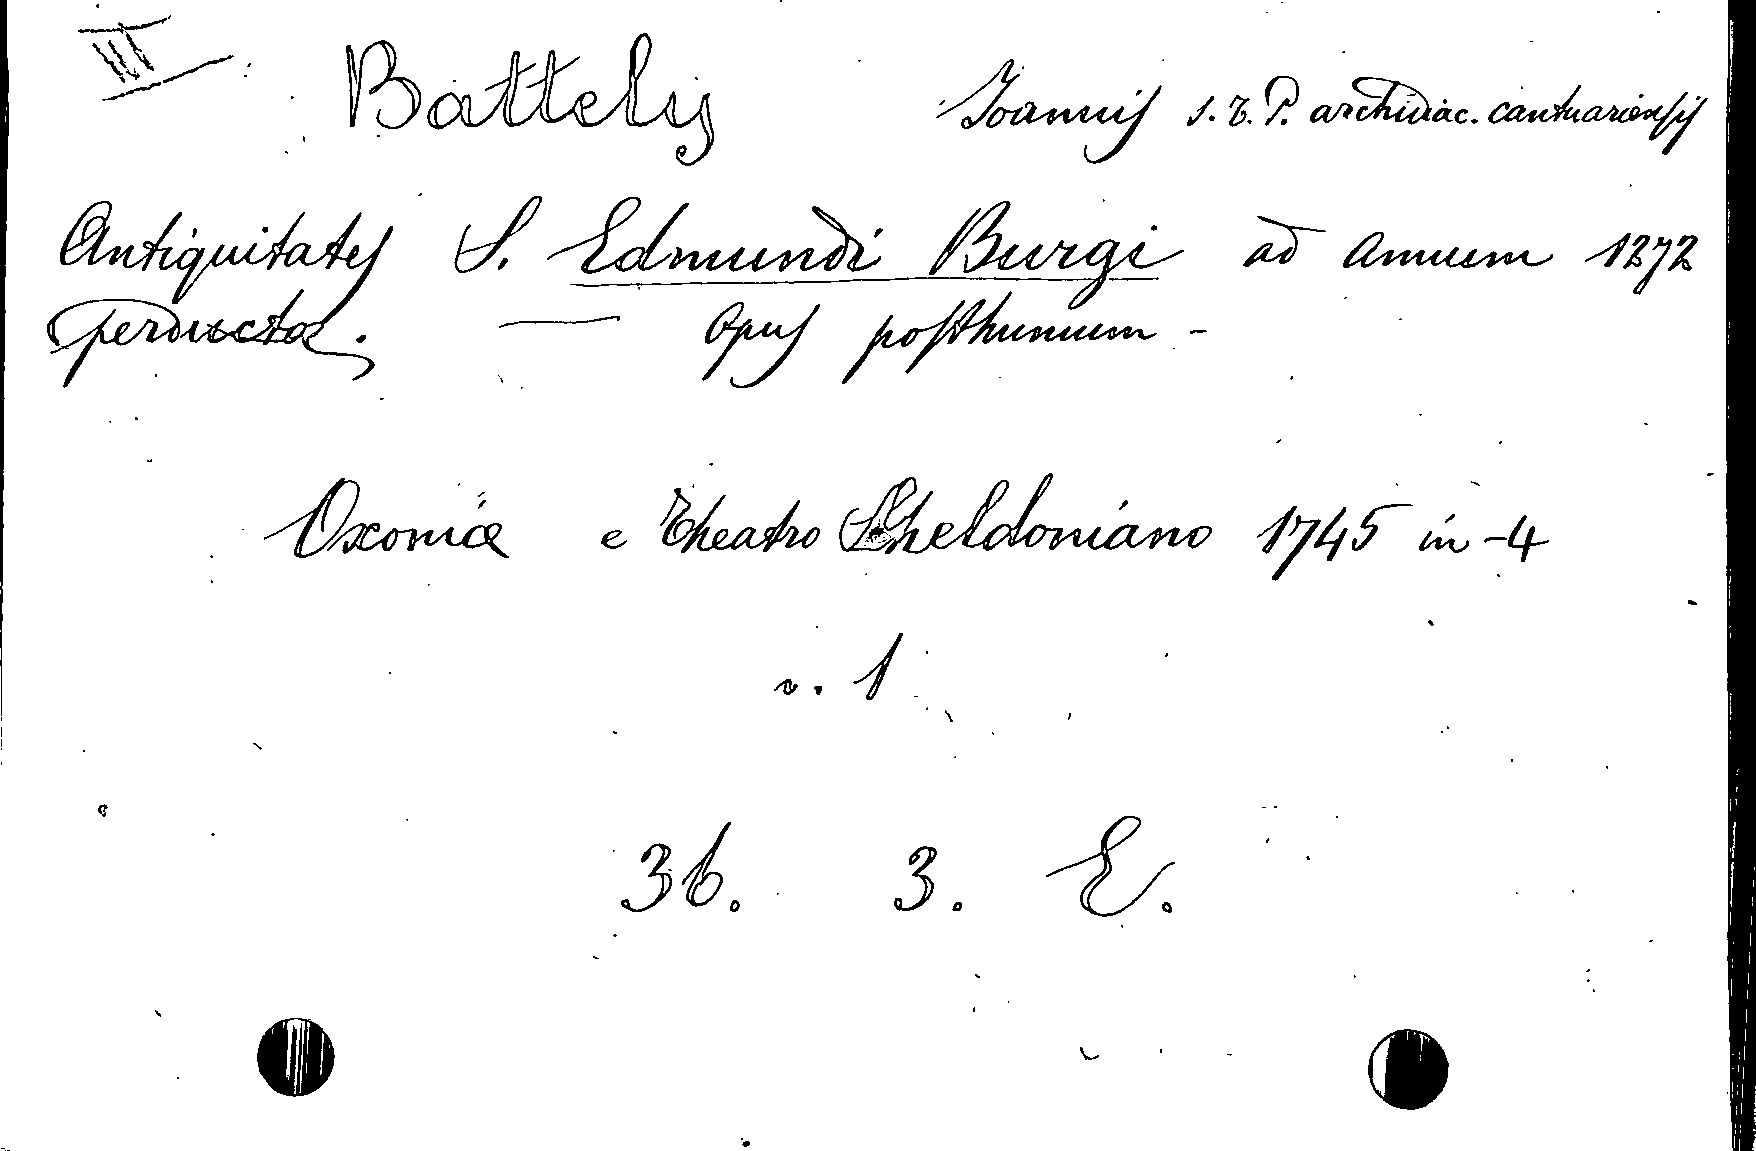 III
Battely Joannis S. T. P. archidiac. cantuariensis
Antiquitates S. Edmundi Burgi ad annum 1272
perductae. — Opus posthumum -
Oxoniae e Theatro Sheldoniano 1745 in-4
v. 1
36. 3. E.